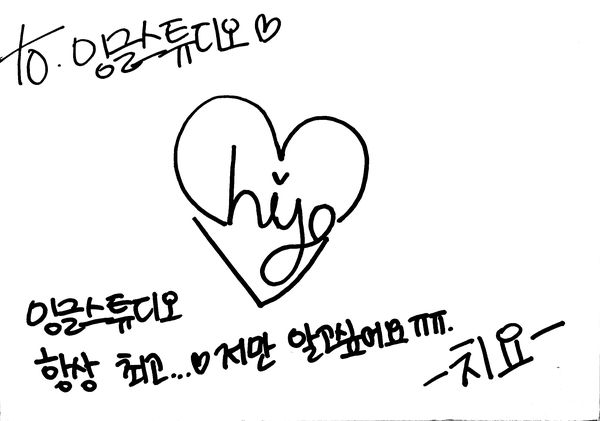 to. 잉맑스튜디오♡
hiyo
잉맑스튜디오
항상 최고...♡ 저만 알고싶어요ㅠㅠ.
-치요-